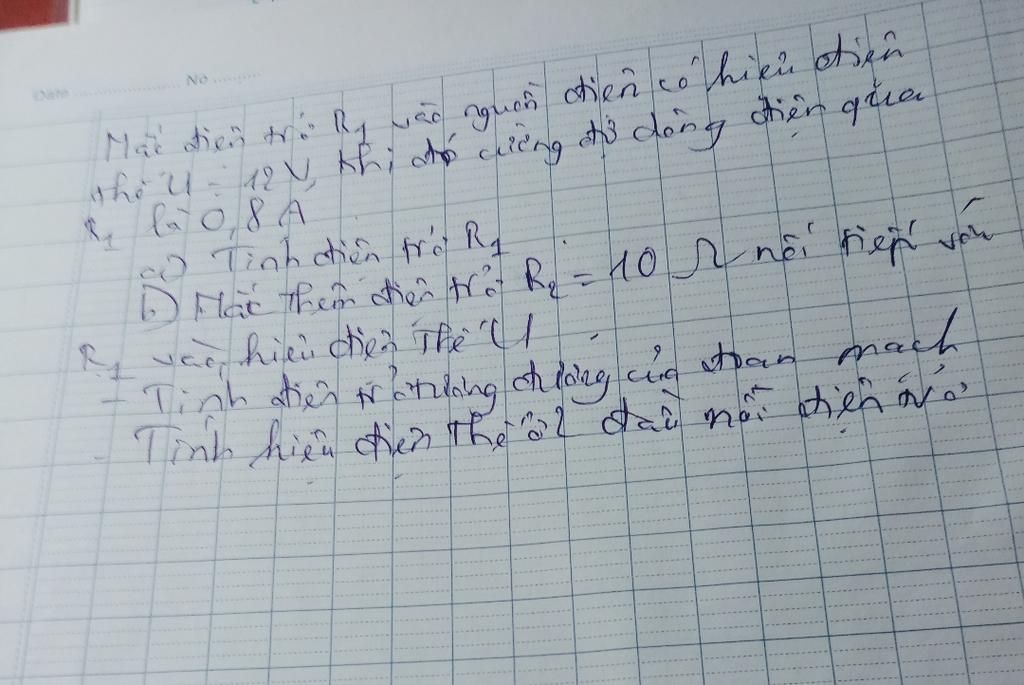 Date .................... No ..........
Mắc điện trở R₁ vào nguồn điện có hiệu điện
thế U = 12V, khi đó cường độ dòng điện qua
R₁ là 0,8 A
a) Tính điện trở R₁
b) Mắc thêm điện trở R₂ = 10 Ω nối tiếp với
R₁ vào hiệu điện thế U
- Tính điện trở tương đương của đoạn mạch
- Tính hiệu điện thế ở 2 đầu mỗi điện trở